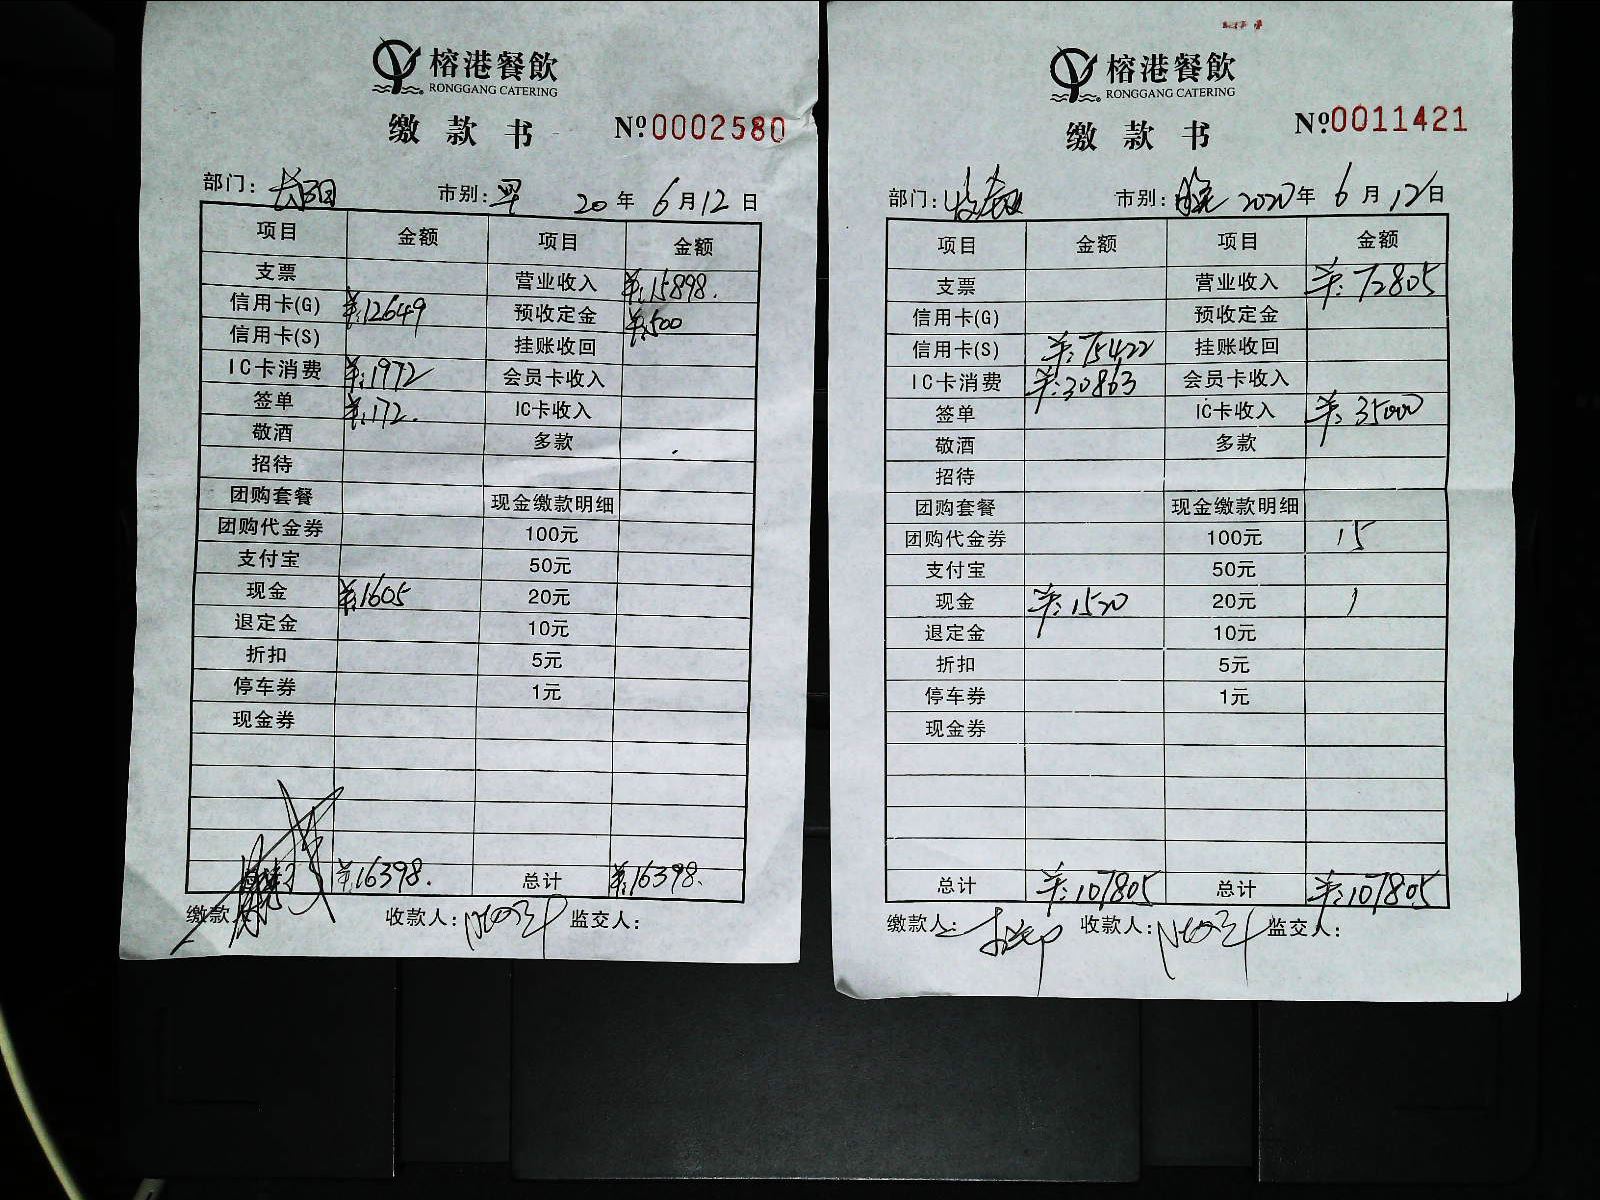 榕港餐飲
RONGGANG CATERING
缴款书 Nº0002580
部门: 市别: 早 20年6月12日
项目 金额 项目 金额
支票 营业收入 ¥:15898.
信用卡(G) ¥:12649 预收定金 ¥:500
信用卡(S) 挂账收回
IC卡消费 ¥:1972 会员卡收入
签单 ¥:172. IC卡收入
敬酒 多款
招待
团购套餐 现金缴款明细
团购代金券 100元
支付宝 50元
现金 ¥:1605 20元
退定金 10元
折扣 5元
停车券 1元
现金券
¥:16398. 总计 ¥:16398.
缴款 收款人: 监交人:
榕港餐飲
RONGGANG CATERING
缴款书 Nº0011421
部门: 市别: 晚 2020年6月12日
项目 金额 项目 金额
支票 营业收入 ¥:72805
信用卡(G) 预收定金
信用卡(S) ¥:75422 挂账收回
IC卡消费 ¥:30863 会员卡收入
签单 IC卡收入 ¥:35000
敬酒 多款
招待
团购套餐 现金缴款明细
团购代金券 100元 15
支付宝 50元
现金 ¥:1520 20元 1
退定金 10元
折扣 5元
停车券 1元
现金券
总计 ¥:107805 总计 ¥:107805
缴款人: 收款人: 监交人: